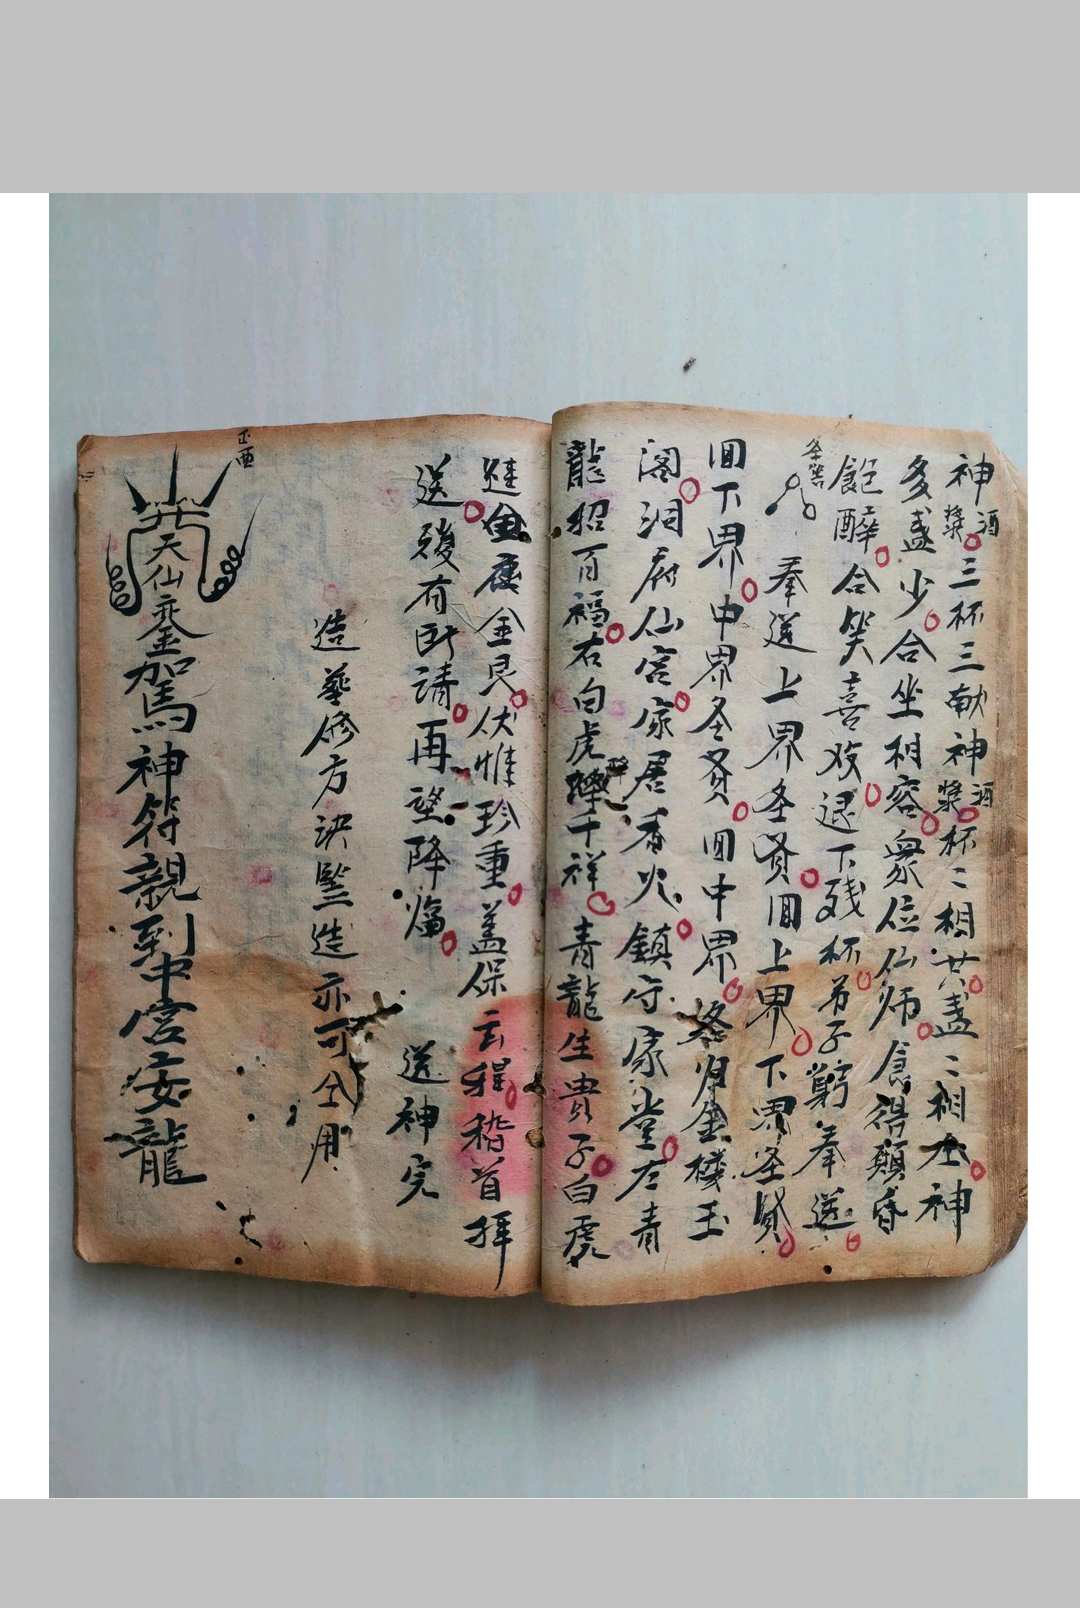 神漿酒三杯三献神漿酒杯二相共盞二相
神
多盞少合坐相容衆位仙师
得顛昏
飽醉合笑喜
退下残杯弟子
奉送
圣筶
奉送上界圣贤囬上界下界圣賢
囬下界中界圣贤囬中界
归金
玉
阁洞府仙宫家居香火鎮守家堂左青
龍招百福右白虎降千祥青龍生貴子白虎
進
金艮伏惟珍重盖保云程稽首拜
送
有所請再望降
送神完
造
修方
造亦可仝用
正酉
天仙
駕神符親到中宫安龍